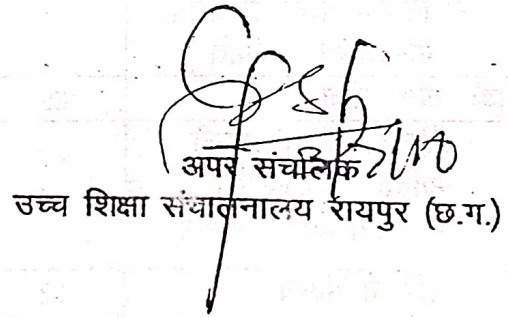 अपर संचालक
उच्च शिक्षा संचालनालय रायपुर (छ.ग.)